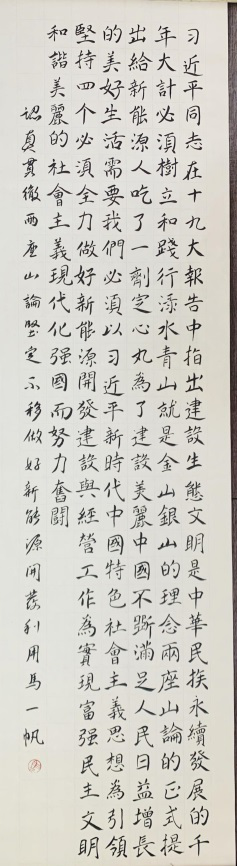 习近平同志在十九大報告中指出建設生態文明是中華民族永續發展的千
年大計必須樹立和踐行淥水青山就是金山銀山的理念兩座山論的正式提
出給新能源人吃了一劑定心丸為了建設美麗中國不斷滿足人民日益增長
的美好生活需要我們必須以习近平新時代中國特色社會主義思想為引領
堅持四个必須全力做好新能源開發建設與經營工作為實現富强民主文明
和諧美麗的社會主義現代化强國而努力奮鬪
認真貫徹兩座山論堅定不移做好新能源開發利用馬一帆